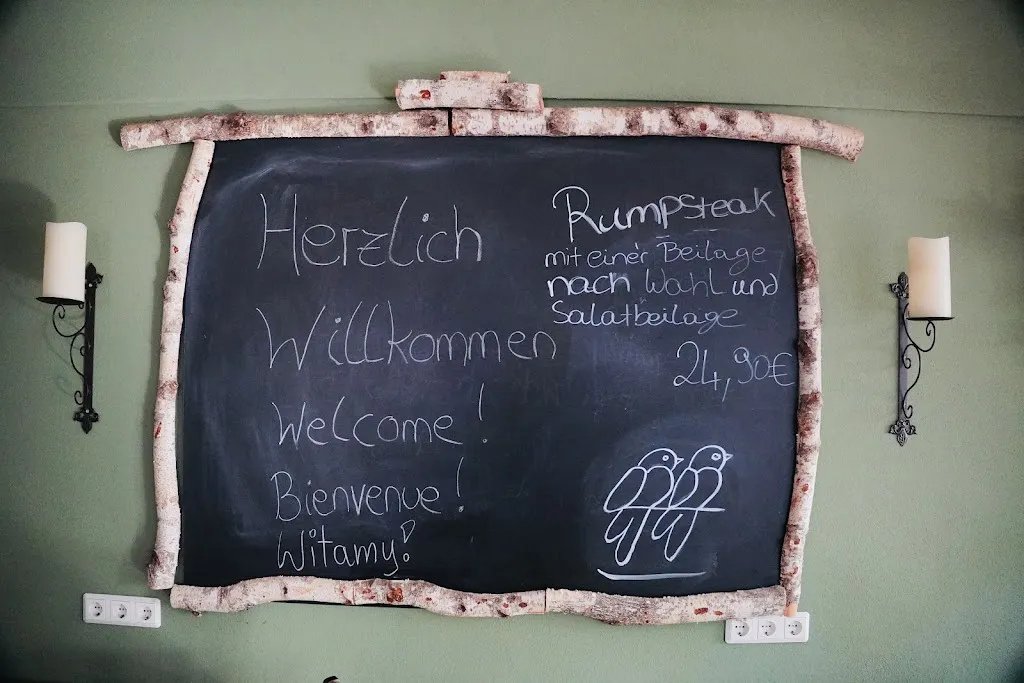 Herzlich
Willkommen
Welcome!
Bienvenue!
Witamy!
Rumpsteak
mit einer Beilage
nach Wahl und
Salatbeilage
24,90€